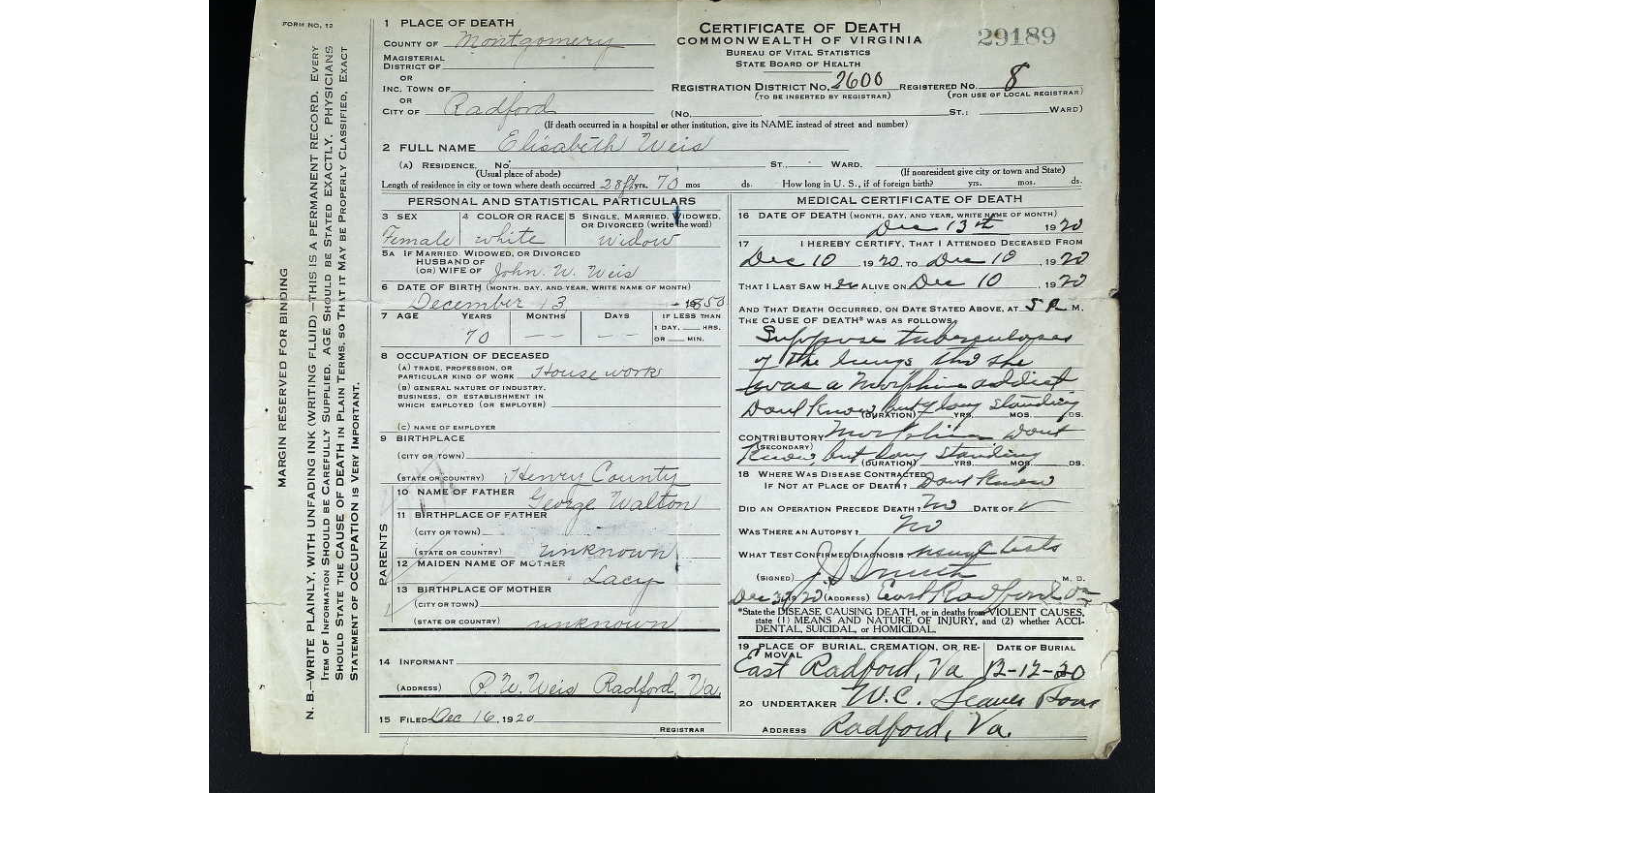 FORM NO. 12
MARGIN RESERVED FOR BINDING
N. B.—WRITE PLAINLY, WITH UNFADING INK (WRITING FLUID)—THIS IS A PERMANENT RECORD. EVERY
ITEM OF INFORMATION SHOULD BE CAREFULLY SUPPLIED. AGE SHOULD BE STATED EXACTLY. PHYSICIANS
SHOULD STATE THE CAUSE OF DEATH IN PLAIN TERMS, SO THAT IT MAY BE PROPERLY CLASSIFIED. EXACT
STATEMENT OF OCCUPATION IS VERY IMPORTANT.
1 PLACE OF DEATH
COUNTY OF Montgomery
MAGISTERIAL
DISTRICT OF
OR
INC. TOWN OF
OR
CITY OF Radford
CERTIFICATE OF DEATH
COMMONWEALTH OF VIRGINIA
BUREAU OF VITAL STATISTICS
STATE BOARD OF HEALTH
29189
REGISTRATION DISTRICT NO. 2600 REGISTERED NO. 8
(TO BE INSERTED BY REGISTRAR) (FOR USE OF LOCAL REGISTRAR)
(NO. ST.; WARD)
(If death occurred in a hospital or other institution, give its NAME instead of street and number)
2 FULL NAME Elisabeth Weis
(A) RESIDENCE. No. ST. WARD.
(Usual place of abode) (If nonresident give city or town and State)
Length of residence in city or town where death occurred 28 yrs. 70 mos ds. How long in U. S., if of foreign birth? yrs. mos. ds.
PERSONAL AND STATISTICAL PARTICULARS
3 SEX
Female
4 COLOR OR RACE
white
5 SINGLE, MARRIED, WIDOWED,
OR DIVORCED (write the word)
widow
5A IF MARRIED, WIDOWED, OR DIVORCED
HUSBAND OF
(OR) WIFE OF John. W. Weis
6 DATE OF BIRTH (MONTH, DAY, AND YEAR, WRITE NAME OF MONTH)
December 13 - 1850
7 AGE YEARS MONTHS DAYS IF LESS THAN
1 DAY, HRS.
70 — — — — OR MIN.
8 OCCUPATION OF DECEASED
(A) TRADE, PROFESSION, OR
PARTICULAR KIND OF WORK House work
(B) GENERAL NATURE OF INDUSTRY,
BUSINESS, OR ESTABLISHMENT IN
WHICH EMPLOYED (OR EMPLOYER)
(C) NAME OF EMPLOYER
9 BIRTHPLACE
(CITY OR TOWN)
(STATE OR COUNTRY) Henry County
PARENTS
10 NAME OF FATHER George Walton
11 BIRTHPLACE OF FATHER
(CITY OR TOWN)
(STATE OR COUNTRY) unknown
12 MAIDEN NAME OF MOTHER
Lacy
13 BIRTHPLACE OF MOTHER
(CITY OR TOWN)
(STATE OR COUNTRY) unknown
14 INFORMANT
(ADDRESS) P. W. Weis Radford, Va.
15 FILED Dec 16, 1920
REGISTRAR
MEDICAL CERTIFICATE OF DEATH
16 DATE OF DEATH (MONTH, DAY, AND YEAR, WRITE NAME OF MONTH)
Dec 13th 1920
17 I HEREBY CERTIFY, THAT I ATTENDED DECEASED FROM
Dec 10 1920, TO Dec 10, 1920
THAT I LAST SAW HER ALIVE ON Dec 10, 1920
AND THAT DEATH OCCURRED, ON DATE STATED ABOVE, AT 5 P M.
THE CAUSE OF DEATH* WAS AS FOLLOWS,
Suppose tuberculoses
of the lungs tho she
was a Morphine addict
Dont Know but of long standing
(DURATION) YRS. MOS. DS.
CONTRIBUTORY Morphine Dont
(SECONDARY)
Know but long standing
(DURATION) YRS. MOS. DS.
18 WHERE WAS DISEASE CONTRACTED
IF NOT AT PLACE OF DEATH? Dont Know
DID AN OPERATION PRECEDE DEATH? No DATE OF
WAS THERE AN AUTOPSY? No
WHAT TEST CONFIRMED DIAGNOSIS? usual tests
(SIGNED) Smith M. D.
Dec 1920 (ADDRESS) East Radford Va
*State the DISEASE CAUSING DEATH, or in deaths from VIOLENT CAUSES,
state (1) MEANS AND NATURE OF INJURY, and (2) whether ACCI-
DENTAL, SUICIDAL, or HOMICIDAL.
19 PLACE OF BURIAL, CREMATION, OR RE-
MOVAL
DATE OF BURIAL
East Radford, Va 12-12-20
20 UNDERTAKER W.C.
ADDRESS Radford, Va.